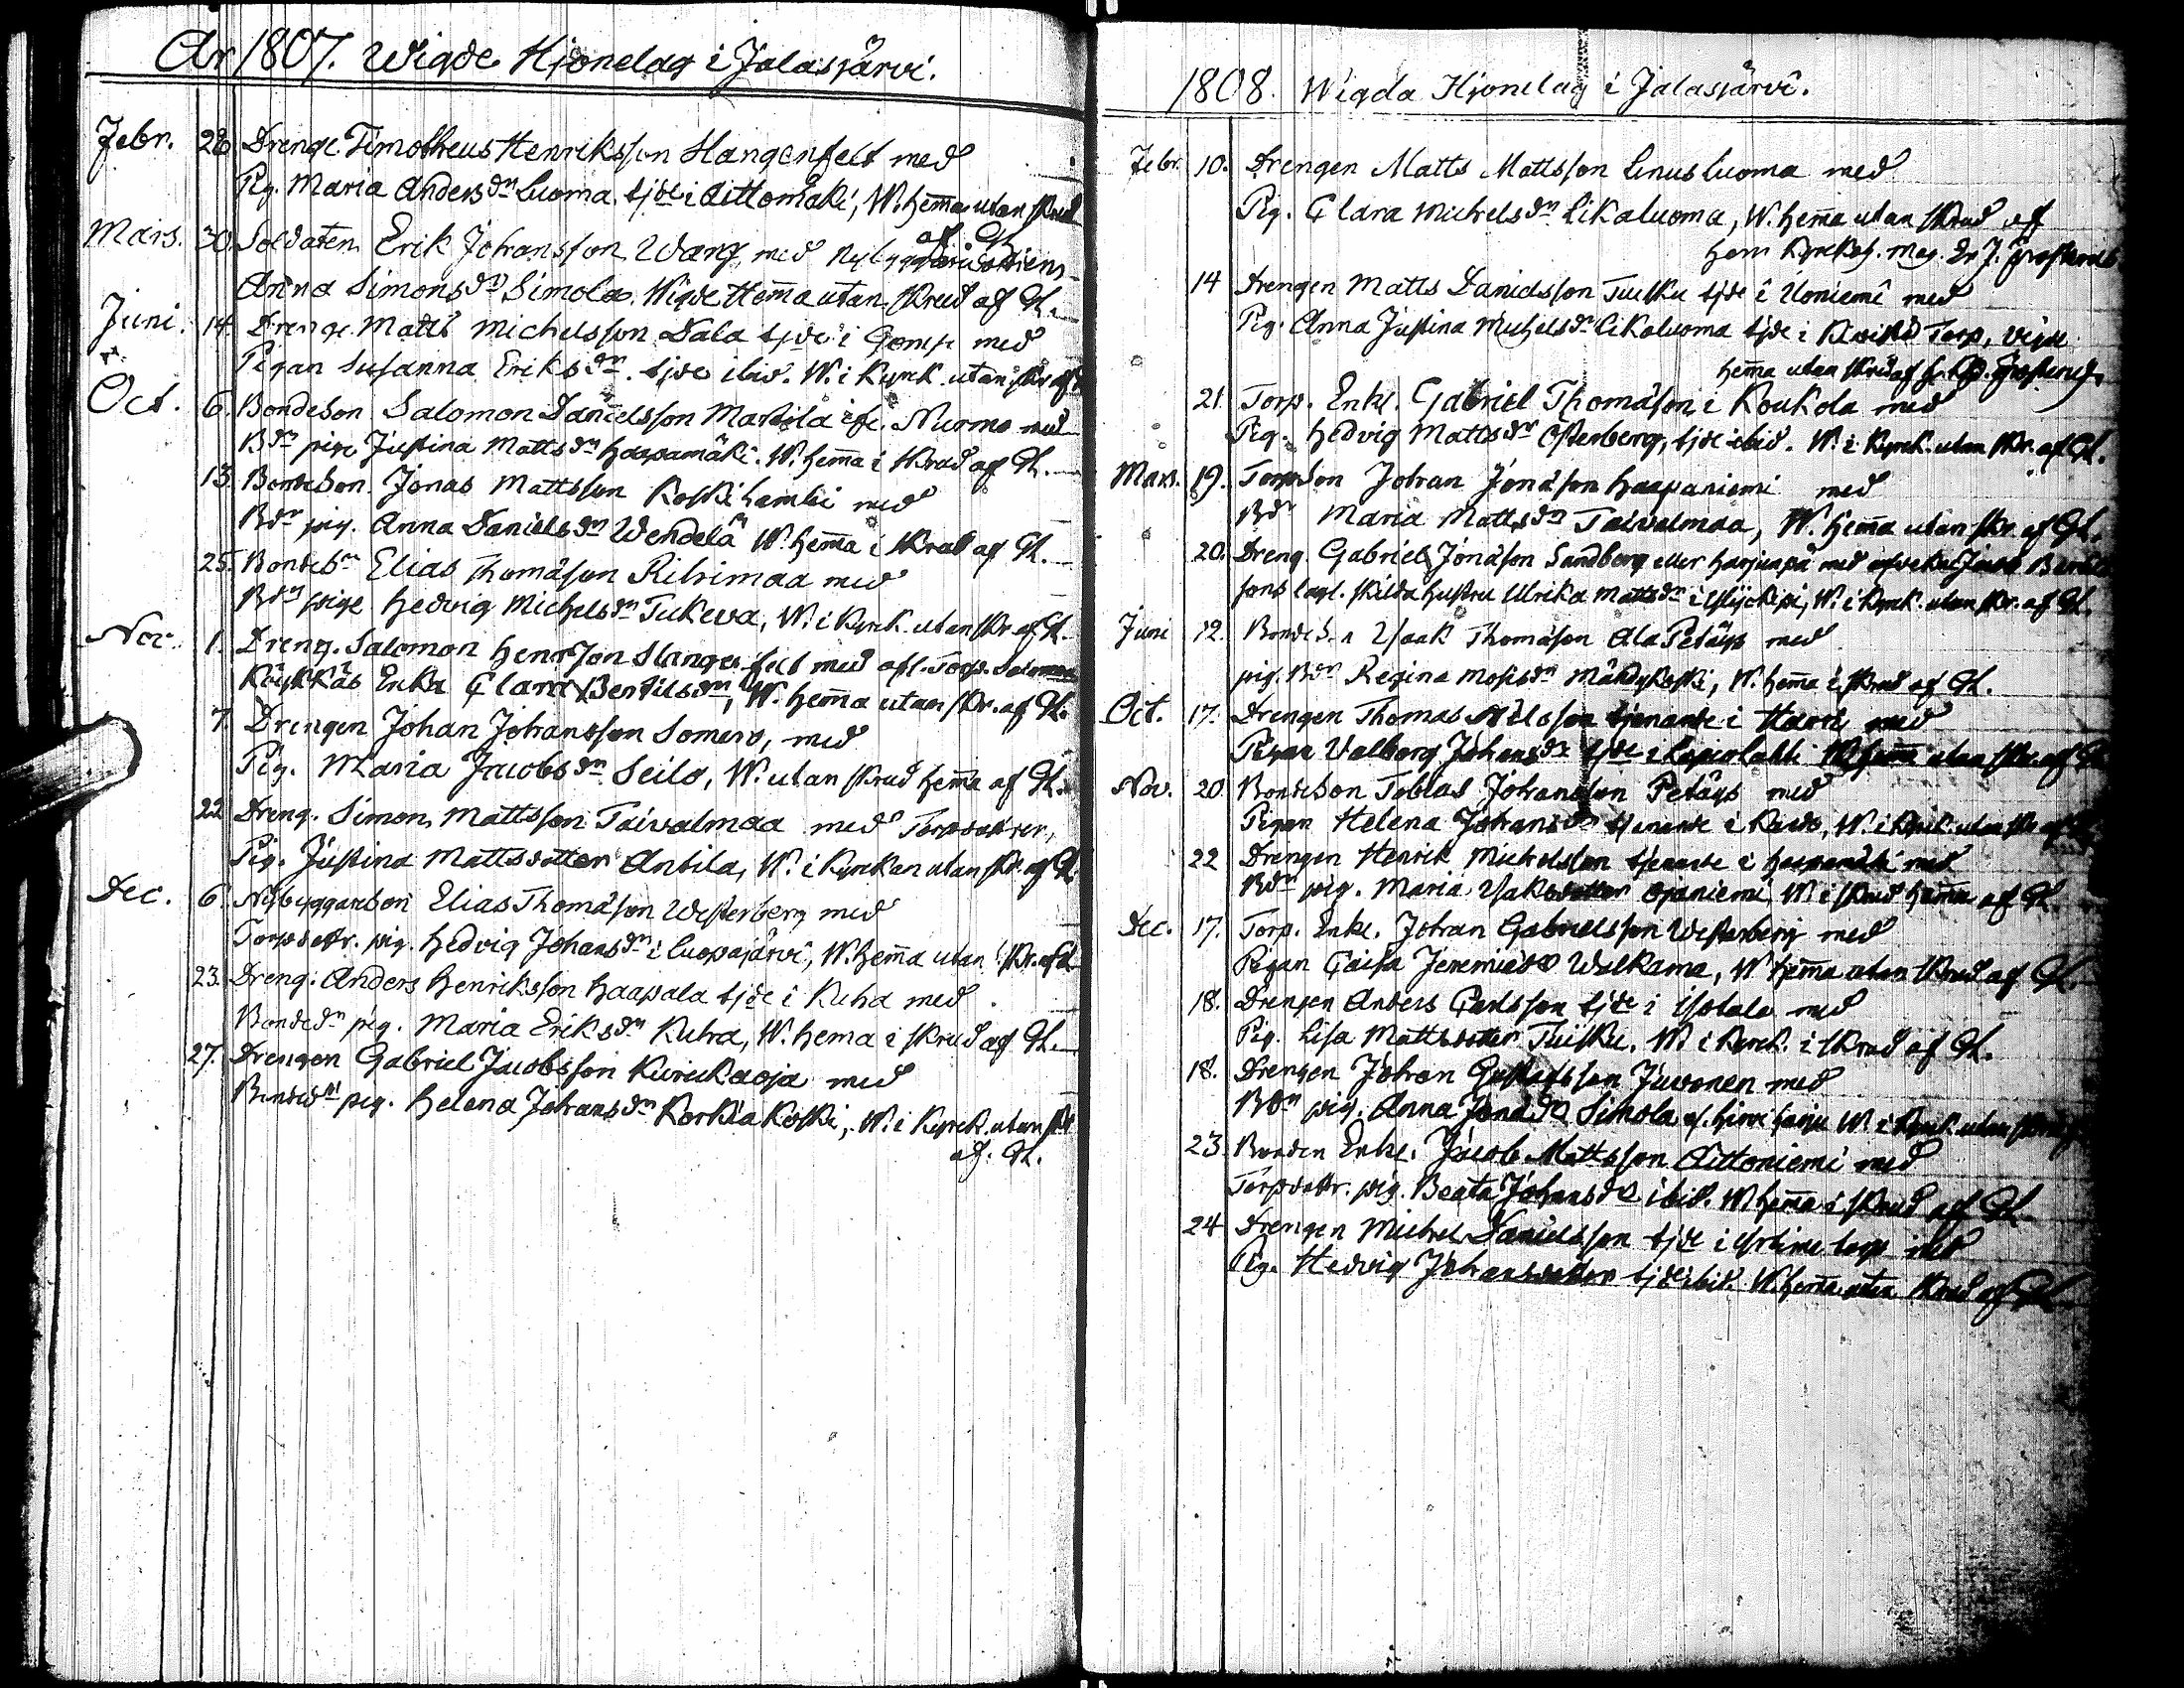 År 1807. Wigde Hjonelag i Jalasjärvi.
Febr. 28. Drenge Timotheus Henriksson Slangenfelt med
Pig. Maria Anders dr Luoma, tjde i Aittomäki, W. hem̄a utan skrud
af Th.
Mars. 30. Soldaten Erik Johansson Warg med Nybyggare
Anna Simons dr Simola. Wigde Hem̄a utan skrud af Th.
Juni. 14. Drenge Matts Michelsson Dala tjde i Gomp med
Pigan Susanna Eriks dr. tjde ibid. W. i Kyrk. utan skr af
Oct. 6. Bondeson Salomon Danielsson Marttila i Nurmo med
Bdr pige Justina Matts dr Haapamäki. W. hem̄a i skrud af Th.
13. Bondeson Jonas Mattsson med
Bdr pig. Anna Daniels dr Wendelä W. hem̄a i skrud af Th.
25. Bondesn Elias Thomäson Rihimaa med
Bdr pige Hedvig Michels dr Tukeva, W. i Kyrk. utan skr. af Th.
Nov. 1. Dreng. Salomon Henrsson Slangenfelt med afl. Torp. Salomon
Enka Clara Bertils dr, W. hem̄a utan skr. af Th.
7. Drengen Johan Johansson Somero, med
Pig. Maria Jacobs dr Seilo, W. utan skrud hem̄a af Th.
22 Dreng. Simon Mattsson Taivalmaa med Torpdottren,
Pig. Justina Mattsdotter Antila, W. i Kyrkan utan skr. af Th
Dec. 6. Nybyggareson Elias Thomäson Westerberg med
Torpdottr. pig. Hedvig Johans dr i Luopajärvi, W. hem̄a utan skr. af Th
23. Dreng. Anders Henriksson Haapala tjde i Kuha med
Bondedr pig. Maria Eriks dr Kuha, W. hema i skrud af Th.
27. Drengen Gabriel Jacobsson Kurickaoja med
Bondedr pig. Helena Johans dr Korkiakoski, W. i Kyrck. utan skr
af. Th.
1808. Wigda Hjonelag i Jalasjärvi.
Febr. 10. Drengen Matts Mattsson Linusluoma med
Pig. Clara Michels dr Likaluoma, W. hem̄a utan skrud af
Herr Kyrkoh. Mag.
14 Drengen Matts Danielsson Tuisku tjde i Uoniemi med
Pig. Anna Justina Michels dr Likaluoma tjde i Torp, vigde
hem̄a utan skrud af
21. Torp. Enkl. Gabriel Thomäson i Koukola med
Pig. Hedvig Matts dr Österberg, tjde ibid. W. i Kyrk. utan skr. af Th.
Mars. 19. Torpson Johan Jonäson Haapaniemi med
Bdr Maria Matts dr Taivalmaa, W. Hem̄a utan skr. af Th.
20. Dreng. Gabriel Jonäson Sandberg eller Harjunpä med Jacob
sons lagl. skilda hustru Ulrika Matts dr i W. i Kyrk. utan skr. af Th.
Juni 12. Bondeson Isaak Thomäson Ala Petäys med
pig. Bdr Regina Mosis dr Mändykoski, W. hem̄a i skrud af Th.
Oct. 17. Drengen Thomas Nilsson tjenande i Harri med
Pigan Valborg Johans dr tjde i W. hem̄a utan skr. af Th
Nov. 20. Bondeson Tobias Johansson Petäys med
Pigan Helena Johans dr tjenande i W. i Kyrk. utan skr af Th
22 Drengen Henrik Michelsson tjenande i Haapamäki med
Bdr pig. Maria Isaksdotter Ojaniemi, W. i skrud hem̄a af Th.
Dec. 17. Torp. Enkl. Johan Gabrielsson Westerberg med
Pigan Caisa Jeremias dr Walkama, W. hem̄a utan skrud af Th.
18. Drengen Anders Carlsson tjde i Isotalo med
Pig. Lisa Mattsdotter Tuisku. W. i Kyrck. i skrud af Th.
18. Drengen Johan Gustafsson Juvonen med
Bdr pig. Anna Jonä dr Simola W. i Kyrck utan skrud
23. Bonden Enkl. Jacob Mattsson Aittoniemi med
Torpdottr. pig. Beata Johans dr ibid. W. hem̄a i skrud af Th
24 Drengen Michel Danielsson tjde i torp med
Pig. Hedvig Johansdotter tjde ibid. W. hem̄a utan skrud af Th